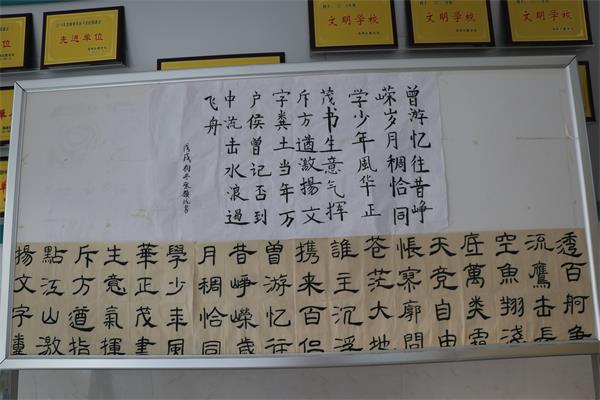 先进单位
文明学校
文明学校
文明学校
曾游忆往昔峥
嵘岁月稠恰同
学少年風华正
茂书生意气挥
斥方遒激揚文
字粪土当年万
户侯曾记否到
中流击水浪遏
飞舟
戊戌
透百舸争
流鷹击長
空魚翔淺
底萬类霜
天竞自由
悵寥廓問
苍茫大地
誰主沉浮
携来百侣
曾游忆往
昔峥嵘歲
月稠恰同
學少年風
華正茂書
生意氣揮
斥方遒指
點江山激
揚文字糞